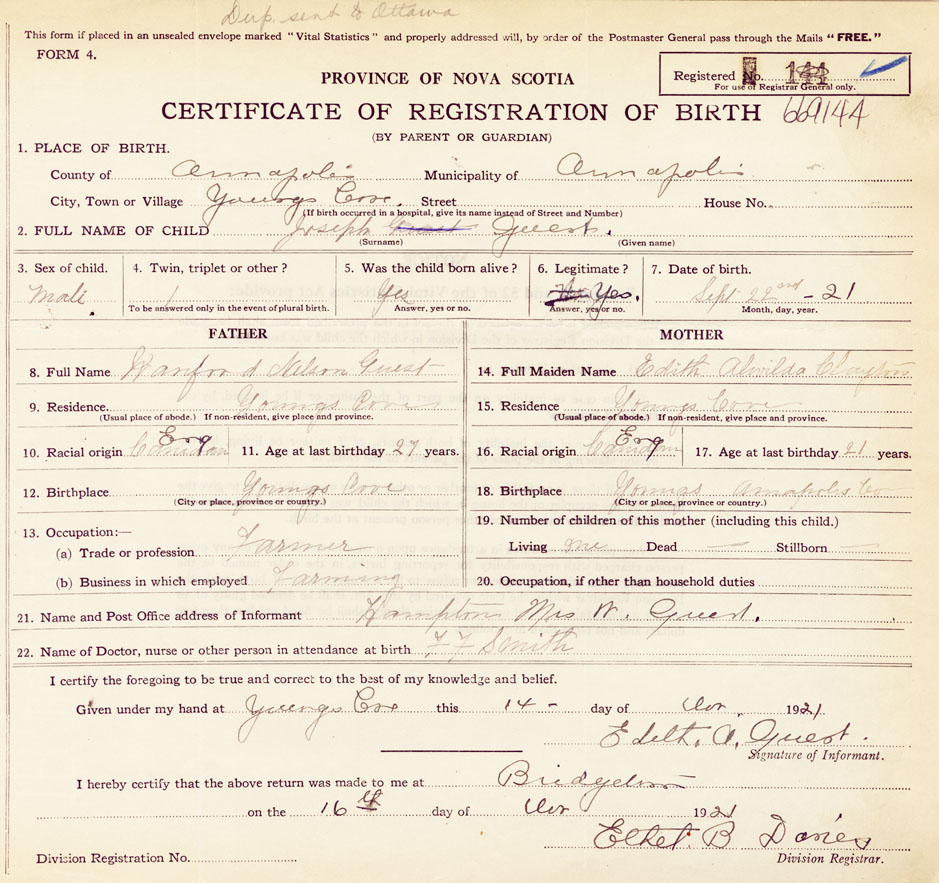 Dup. sent to Ottawa
This form if placed in an unsealed envelope marked "Vital Statistics" and properly addressed will, by order of the Postmaster General pass through the Mails "FREE."
FORM 4.
Registered No. 144
For use of Registrar General only.
PROVINCE OF NOVA SCOTIA
CERTIFICATE OF REGISTRATION OF BIRTH 669144
(BY PARENT OR GUARDIAN)
1. PLACE OF BIRTH.
County of Annapolis Municipality of Annapolis
City, Town or Village Youngs Cove. Street House No.
(If birth occurred in a hospital, give its name instead of Street and Number)
2. FULL NAME OF CHILD Joseph Guest.
(Surname) (Given name)
3. Sex of child. 4. Twin, triplet or other? 5. Was the child born alive? 6. Legitimate? 7. Date of birth.
Male 1 Yes Yes. Sept 22nd - 21
To be answered only in the event of plural birth. Answer, yes or no. Answer, yes or no. Month, day, year.
FATHER MOTHER
8. Full Name Nelson Guest 14. Full Maiden Name Edith Alvilda Clayton
9. Residence Youngs Cove 15. Residence Youngs Cove
(Usual place of abode.) If non-resident, give place and province. (Usual place of abode.) If non-resident, give place and province.
10. Racial origin Canidan Eng 11. Age at last birthday 27 years. 16. Racial origin Canidan Eng 17. Age at last birthday 21 years.
12. Birthplace Youngs Cove 18. Birthplace Youngs Annapolis Co
(City or place, province or country.) (City or place, province or country.)
13. Occupation:— 19. Number of children of this mother (including this child.)
(a) Trade or profession Farmer Living one Dead — Stillborn —
(b) Business in which employed Farming 20. Occupation, if other than household duties
21. Name and Post Office address of Informant Hampton Mrs W. Guest.
22. Name of Doctor, nurse or other person in attendance at birth F F Smith
I certify the foregoing to be true and correct to the best of my knowledge and belief.
Given under my hand at Youngs Cove this 14 - day of Nov. 1921
Edith. A. Guest.
Signature of Informant.
I hereby certify that the above return was made to me at Bridgetown
on the 16th day of Nov 1921
Ethel. B Davies
Division Registrar.
Division Registration No.